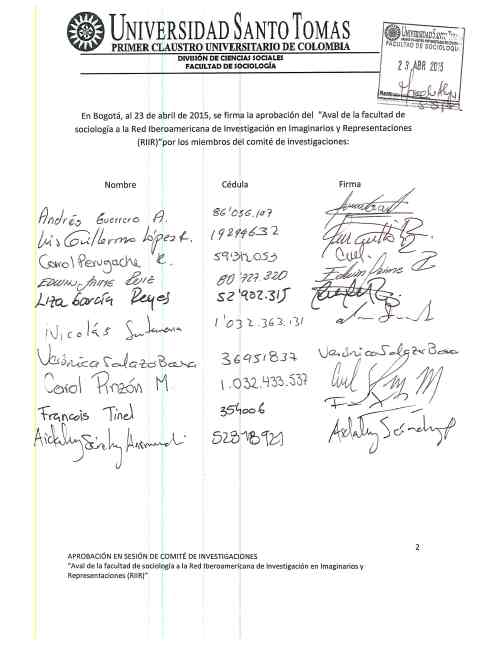 UNIVERSIDAD SANTO TOMAS
PRIMER CLAUSTRO UNIVERSITARIO DE COLOMBIA
DIVISIÓN DE CIENCIAS SOCIALES
FACULTAD DE SOCIOLOGÍA
UNIVERSIDAD SANTO TOMAS
FACULTAD DE SOCIOLOGIA
23 ABR 2015
En Bogotá, al 23 de abril de 2015, se firma la aprobación del "Aval de la facultad de
sociología a la Red Iberoamericana de Investigación en Imaginarios y Representaciones
(RIIR)"por los miembros del comité de investigaciones:
Nombre Cédula Firma
Andrés Guerrero A. 86'056.107
Luis Guillermo López 19294632
Carol Perugache 59312053
EDWIN JAIME RUIZ 80'727.320 Edwin Jaime
Liza García Reyes 52'902.315
Nicolás Santamaria 1'032.363.131
Verónica Salazo Baxa 36951837 Verónica Salazo Baxa
Carol Pinzón M 1.032.433.537
François Tinel 354006
Aidaluz Sánchez 52818921 Aidaluz Sánchez
2
APROBACIÓN EN SESIÓN DE COMITÉ DE INVESTIGACIONES
"Aval de la facultad de sociología a la Red Iberoamericana de Investigación en Imaginarios y
Representaciones (RIIR)"